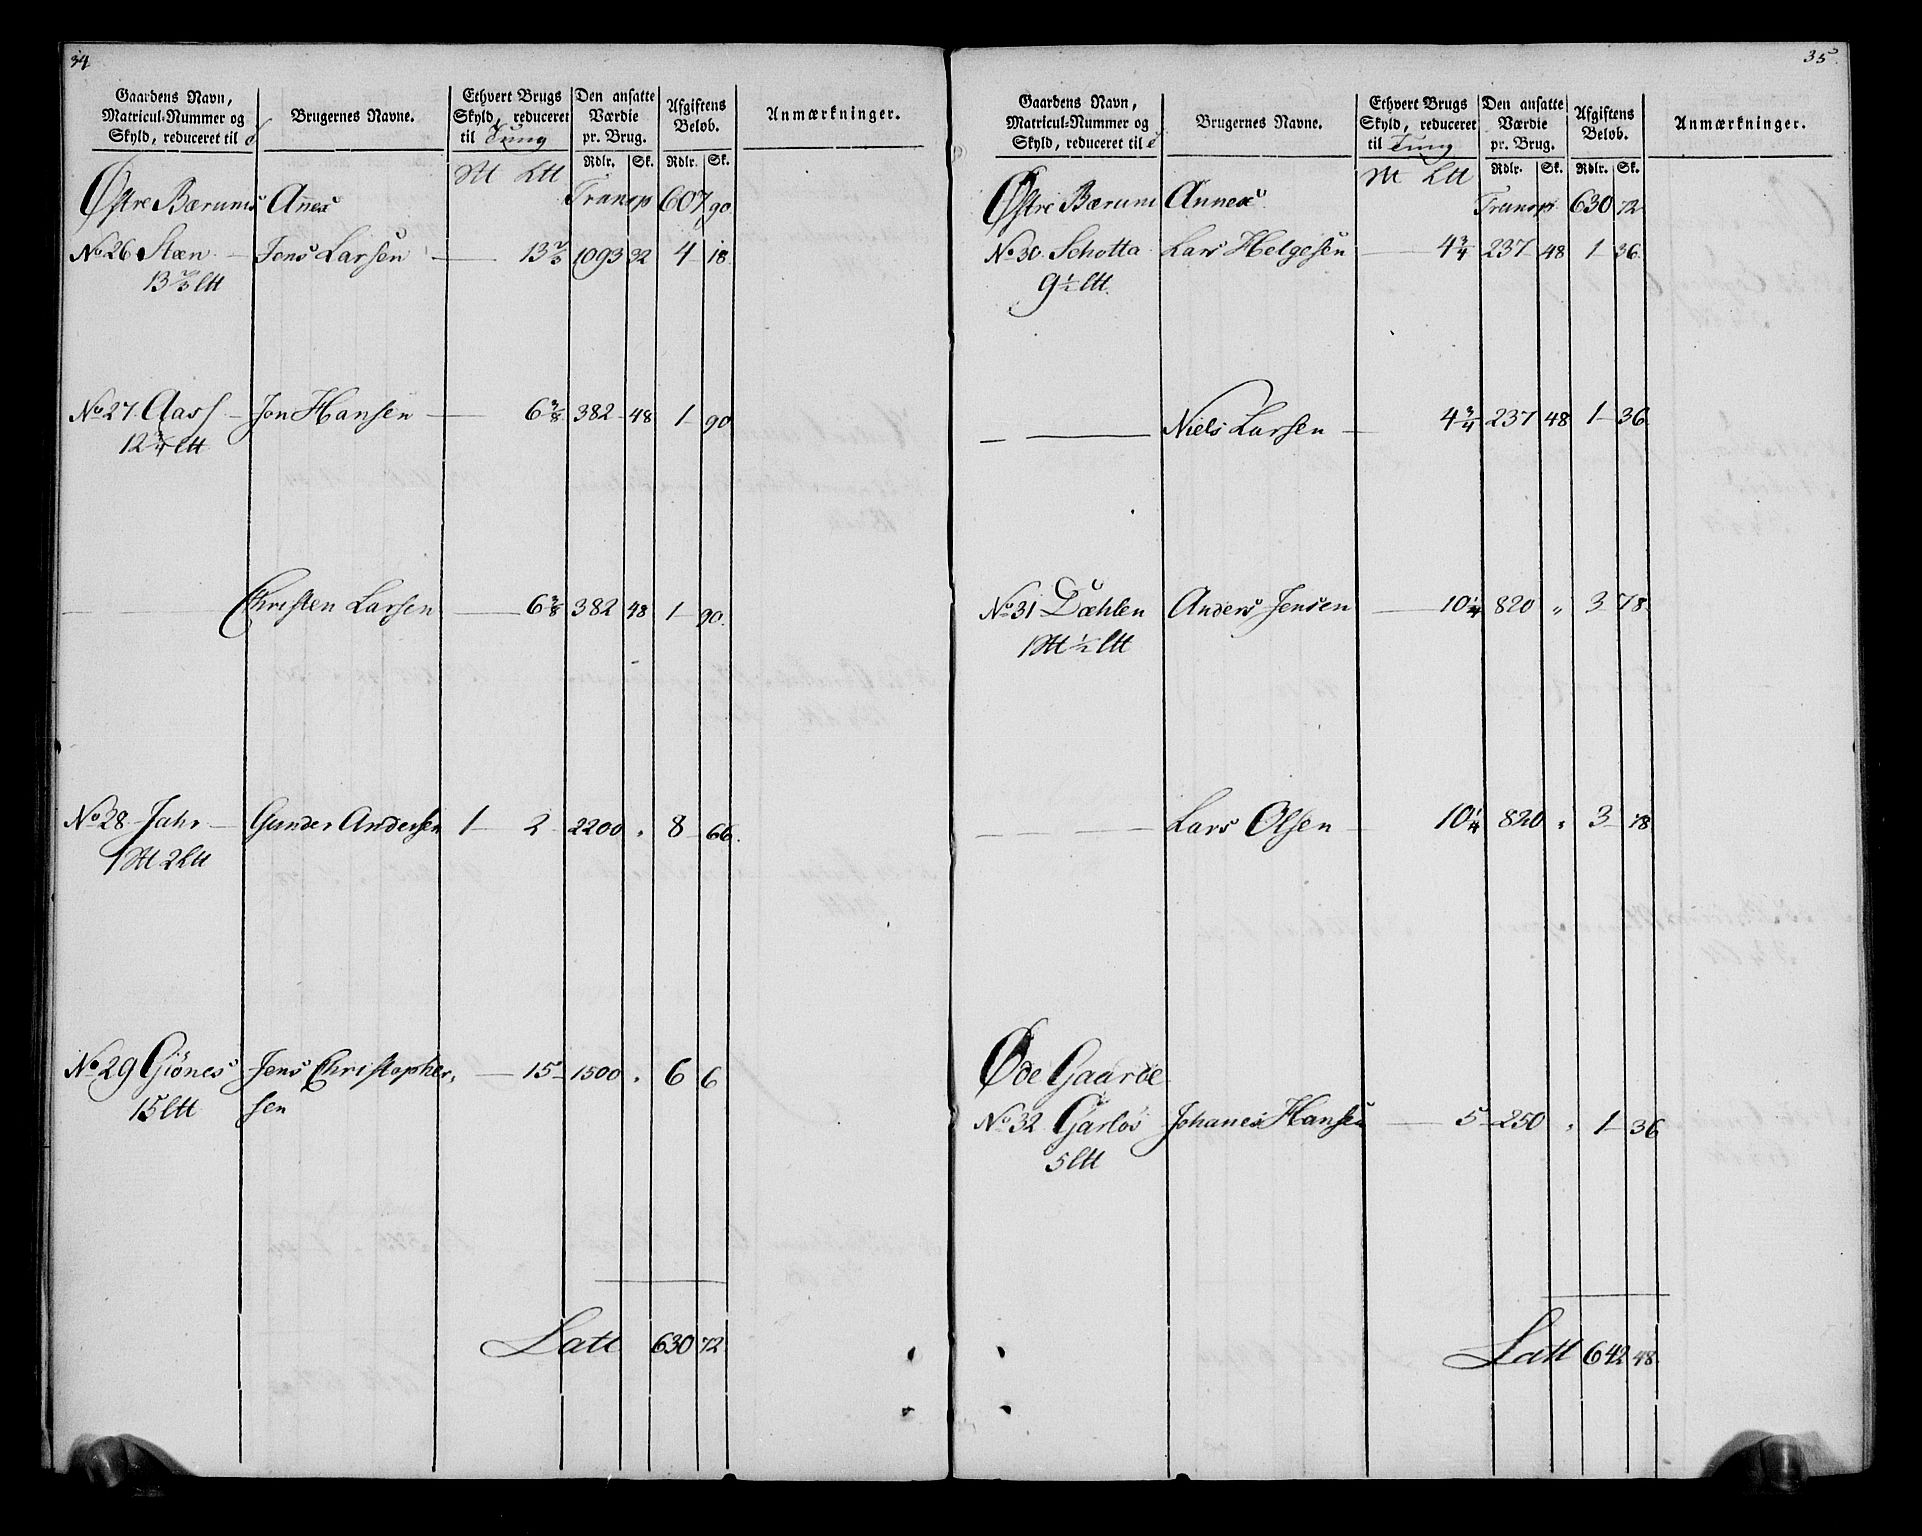 34
Gaardens Navn, Matricul-Nummer og Skyld, reduceret til
Brugernes Navne.
Ethvert Brugs Skyld, reduceret til Tung
Den ansatte Værdie pr. Brug.
Afgiftens Beløb.
Anmærkninger.
Rdlr. Sk. Rdlr. Sk.
Østre Bærums Annex Transp 607 90
No 26 Stæn Jens Larsen 13 2/3 1093 32 4 18
13 2/3 Ltt
No 27 Aass Jon Hansen 6 3/8 382 48 1 90
12 3/4 Ltt
Christen Larsen 6 3/8 382 48 1 90
No 28 Jahr Gunder Andersen 1 2 2200 " 8 66
1 Stt 2 Ltt
No 29 Giönes Jens Christopher-
15 Ltt sen 15 1500 " 6 6
Latt 630 72
35
Gaardens Navn, Matricul-Nummer og Skyld, reduceret til
Brugernes Navne.
Ethvert Brugs Skyld, reduceret til Tung
Den ansatte Værdie pr. Brug.
Afgiftens Beløb.
Anmærkninger.
Rdlr. Sk. Rdlr. Sk.
Østre Bærum Annex Transp 630 72
No 30 Schotta Lars Helgesen 4 3/4 237 48 1 36
9 1/2 Ltt
Niels Larsen 4 3/4 237 48 1 36
No 31 Dæhlen Anders Jensen 10 1/4 820 " 3 78
1 Stt 1/2 Ltt
Lars Olsen 10 1/4 820 " 3 78
Øde Gaarde
No 32 Garløs Johanes Hansen 5 250 " 1 36
5 Ltt
Latt 642 48